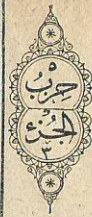 حزب
٥
الجزء
٣